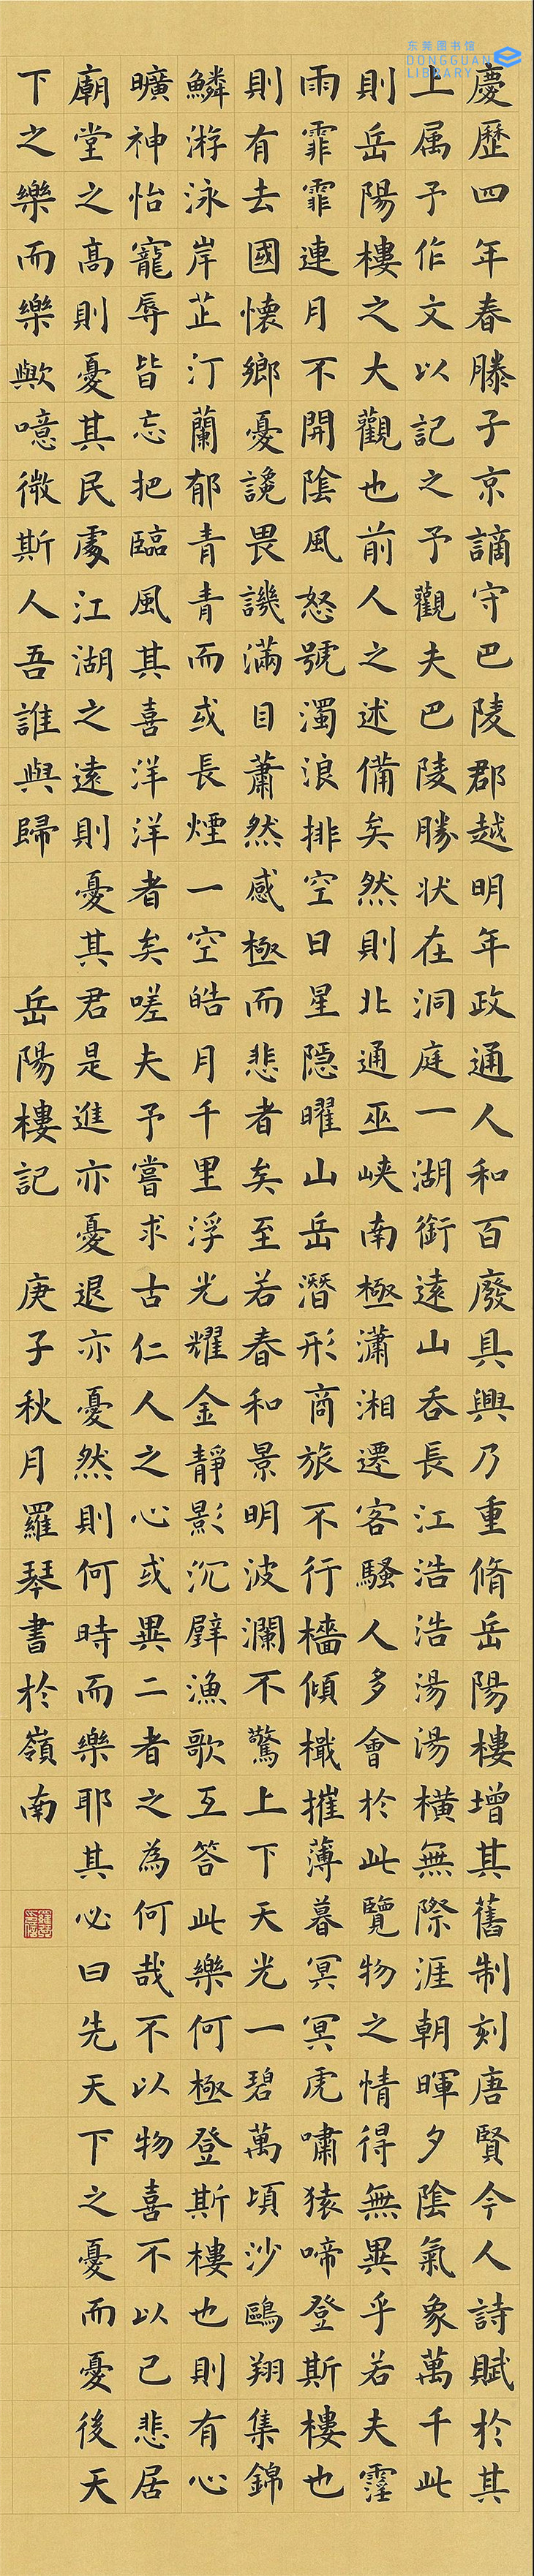 慶歷四年春滕子京謫守巴陵郡越明年政通人和百廢具興乃重脩岳陽樓增其舊制刻唐賢今人詩賦於其
上属予作文以記之予觀夫巴陵勝状在洞庭一湖銜遠山吞長江浩浩湯湯橫無際涯朝暉夕陰氣象萬千此
則岳陽樓之大觀也前人之述備矣然則北通巫峽南極瀟湘遷客騷人多會於此覽物之情得無異乎若夫霪
雨霏霏連月不開陰風怒號濁浪排空日星隱曜山岳潛形商旅不行檣傾檝摧薄暮冥冥虎嘯猿啼登斯樓也
則有去國懷鄉憂讒畏譏滿目蕭然感極而悲者矣至若春和景明波瀾不驚上下天光一碧萬頃沙鷗翔集錦
鱗游泳岸芷汀蘭郁青青而或長煙一空皓月千里浮光耀金靜影沉璧漁歌互答此樂何極登斯樓也則有心
曠神怡寵辱皆忘把臨風其喜洋洋者矣嗟夫予嘗求古仁人之心或異二者之為何哉不以物喜不以己悲居
廟堂之高則憂其民處江湖之遠則憂其君是進亦憂退亦憂然則何時而樂耶其必曰先天下之憂而憂後天
下之樂而樂歟噫微斯人吾誰與歸 岳陽樓記 庚子秋月羅琴書於嶺南
东莞图书馆
DONGGUAN
LIBRARY